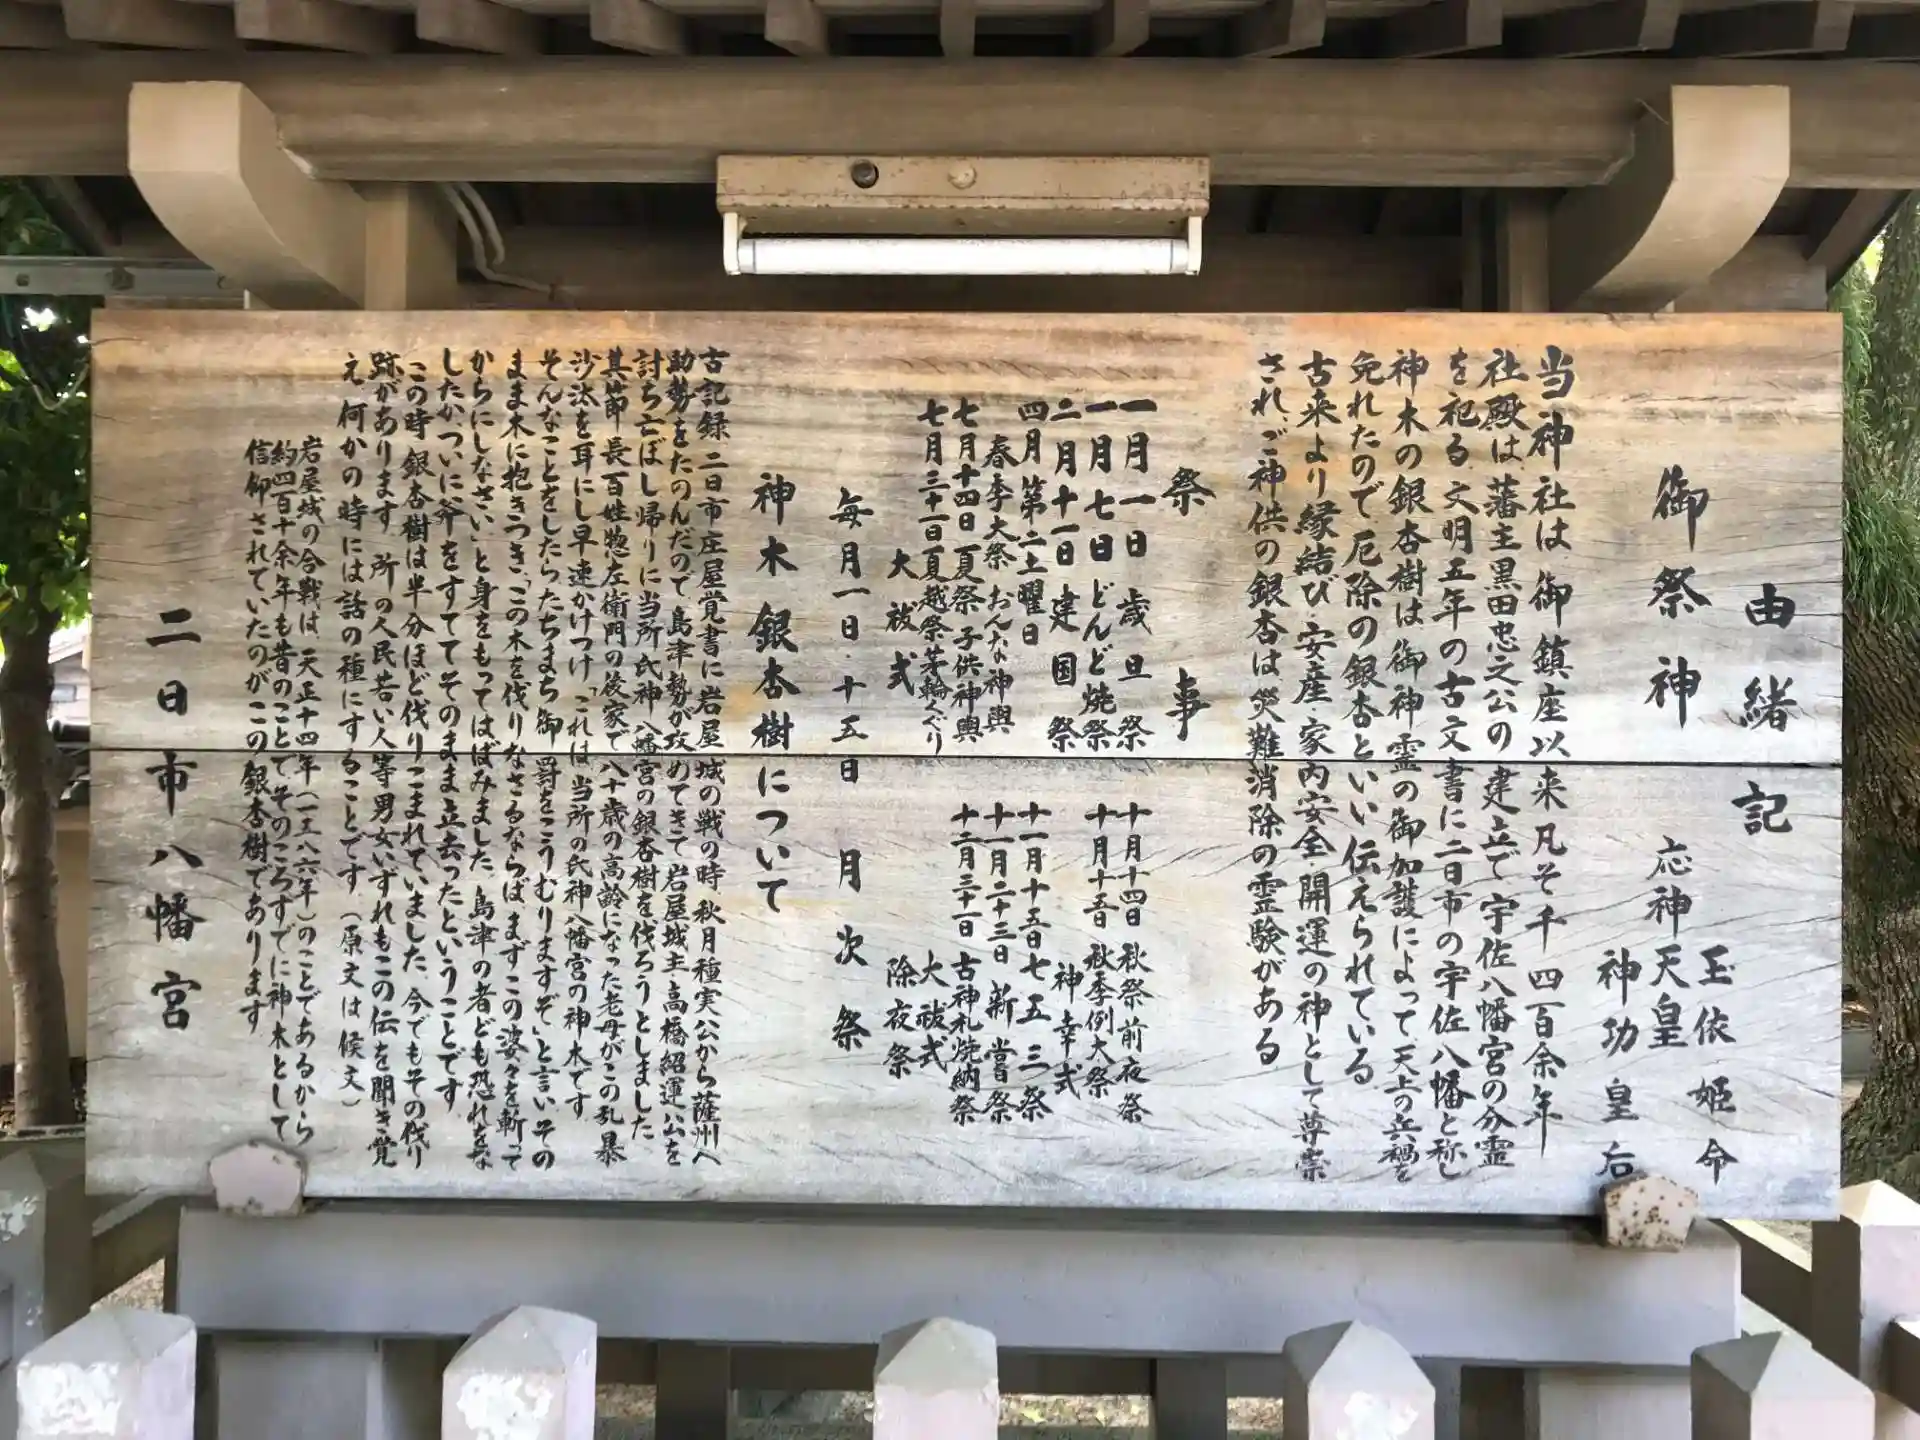 由緒記
御祭神
玉依姫命
応神天皇
神功皇后
当神社は御鎮座以来凡そ千四百余年
社殿は、藩主黒田忠之公の建立で、宇佐八幡宮の分霊
を祀る、文明五年の古文書に二日市の宇佐八幡と称し
神木の銀杏樹は御神霊の御加護によって、天上の兵禍を
免れたので、厄除の銀杏といい伝えられている
古来より縁結び・安産・家内安全・開運の神として尊崇
され、ご神供の銀杏は災難消除の霊験がある
祭事
一月一日 歳旦祭
一月七日 どんど焼祭
二月十一日 建国祭
四月第二土曜日
春季大祭 おんな神輿
七月十四日 夏祭 子供神輿
七月三十一日 夏越祭 茅輪くぐり
大祓式
十月十四日 秋祭前夜祭
十月十五日 秋季例大祭
神幸式
十一月十五日 七五三祭
十一月二十三日 新嘗祭
十二月三十一日 古神札焼納祭
大祓式
除夜祭
毎月一日・十五日 月次祭
神木銀杏樹について
古記録 二日市庄屋覚書に岩屋城の戦の時、秋月種実公から薩州へ
助勢をたのんだので、島津勢が攻めてきて、岩屋城主高橋紹運公を
討ち亡ぼし帰りに当所氏神 八幡宮の銀杏樹を伐ろうとしました
其節 長百姓惣左衛門の後家で八十歳の高齢になった老母がこの乱暴
沙汰を耳にし早速かけつけ「これは当所の氏神八幡宮の神木です
そんなことをしたらたちまち御罰をこうむりますぞ」と言い、その
まま木に抱きつき、「この木を伐りなさるならば、まずこの婆々を斬って
からにしなさい」と身をもってはばみました、島津の者ども恐れをな
したか、ついに斧をすててそのまま立去ったということです
この時銀杏樹は半分ほど伐りこまれていました、今でもその伐り
跡があります 所の人民若い人等男女いずれもこの伝を聞き覚
え 何かの時には話の種にすることです (原文は候文)
岩屋城の合戦は、天正十四年(一五八六年)のことであるから
約四百十余年も昔のことでそのころすでに神木として
信仰されていたのがこの銀杏樹であります
二日市八幡宮